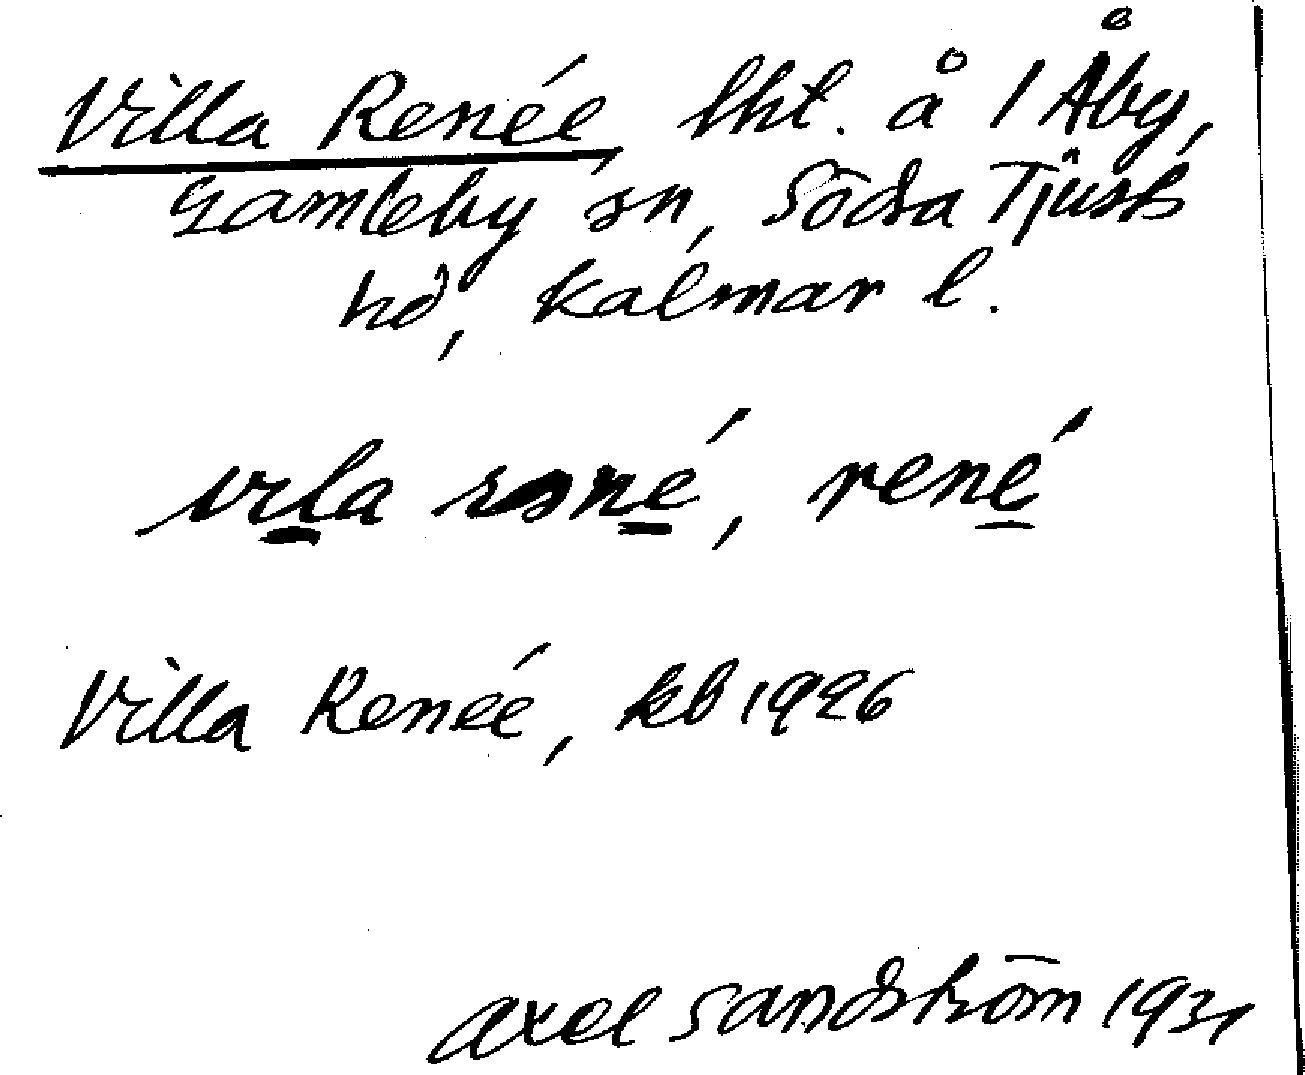 Villa Renée, lht. å 1 Åby,
Gamleby sn, Södra Tjusts
hd, Kalmar l.
vila rené, rené
Villa Renée, kb 1926
Axel Sandström 1931